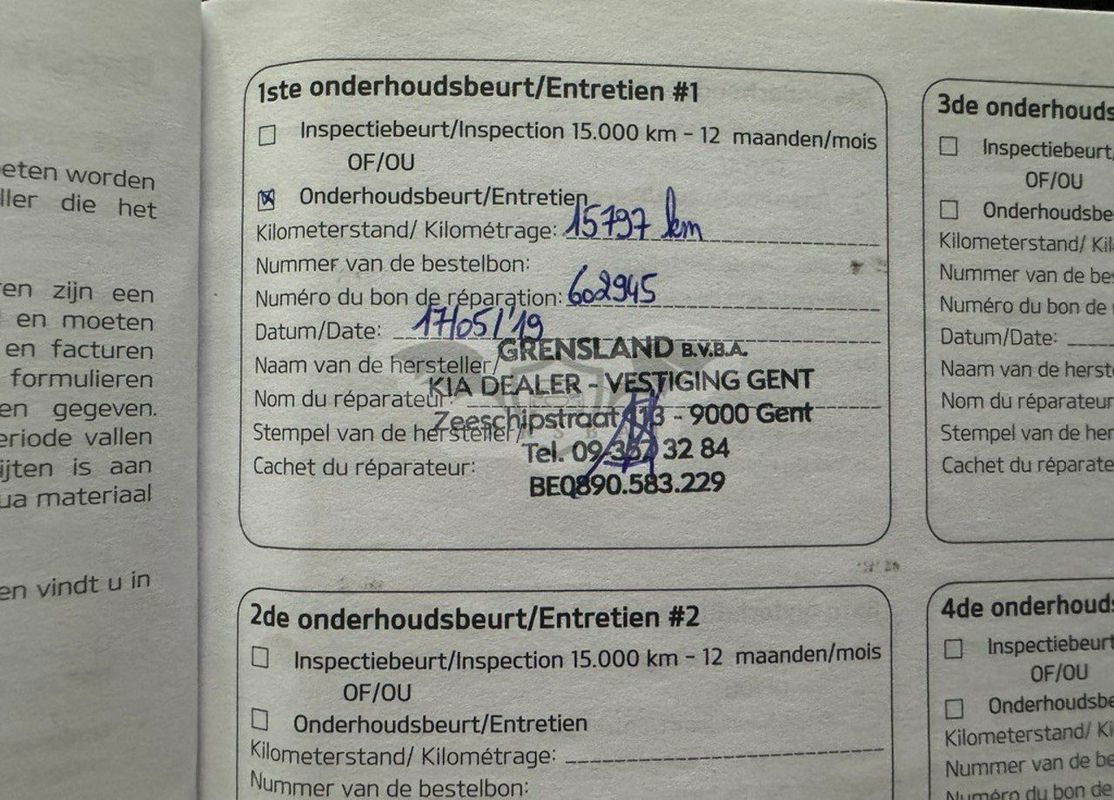 eten worden
ller die het
en zijn een
en moeten
en facturen
formulieren
en gegeven.
eriode vallen
ijten is aan
ua materiaal
en vindt u in
1ste onderhoudsbeurt/Entretien #1
Inspectiebeurt/Inspection 15.000 km - 12 maanden/mois
OF/OU
Onderhoudsbeurt/Entretien
Kilometerstand/ Kilométrage: 15797 km
Nummer van de bestelbon:
Numéro du bon de réparation: 602945
Datum/Date: 17/05/'19
Naam van de hersteller/
Nom du réparateur:
Stempel van de hersteller/
Cachet du réparateur:
GRENSLAND B.V.B.A.
KIA DEALER - VESTIGING GENT
Zeeschipstraat 113 - 9000 Gent
Tel. 09-357 32 84
BE0890.583.229
2de onderhoudsbeurt/Entretien #2
Inspectiebeurt/Inspection 15.000 km - 12 maanden/mois
OF/OU
Onderhoudsbeurt/Entretien
Kilometerstand/ Kilométrage:
Nummer van de bestelbon:
3de onderhouds
Inspectiebeurt/
OF/OU
Onderhoudsbe
Kilometerstand/ Kil
Nummer van de bes
Numéro du bon de r
Datum/Date:
Naam van de herste
Nom du réparateur
Stempel van de her
Cachet du réparate
4de onderhouds
Inspectiebeurt
OF/OU
Onderhoudsbe
Kilometerstand/ Ki
Nummer van de be
Numéro du bon de